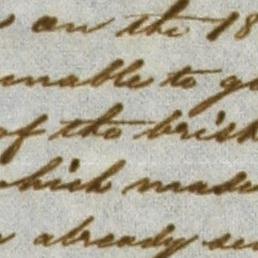 on the 18
unable to g
of the brisk
which made
already se